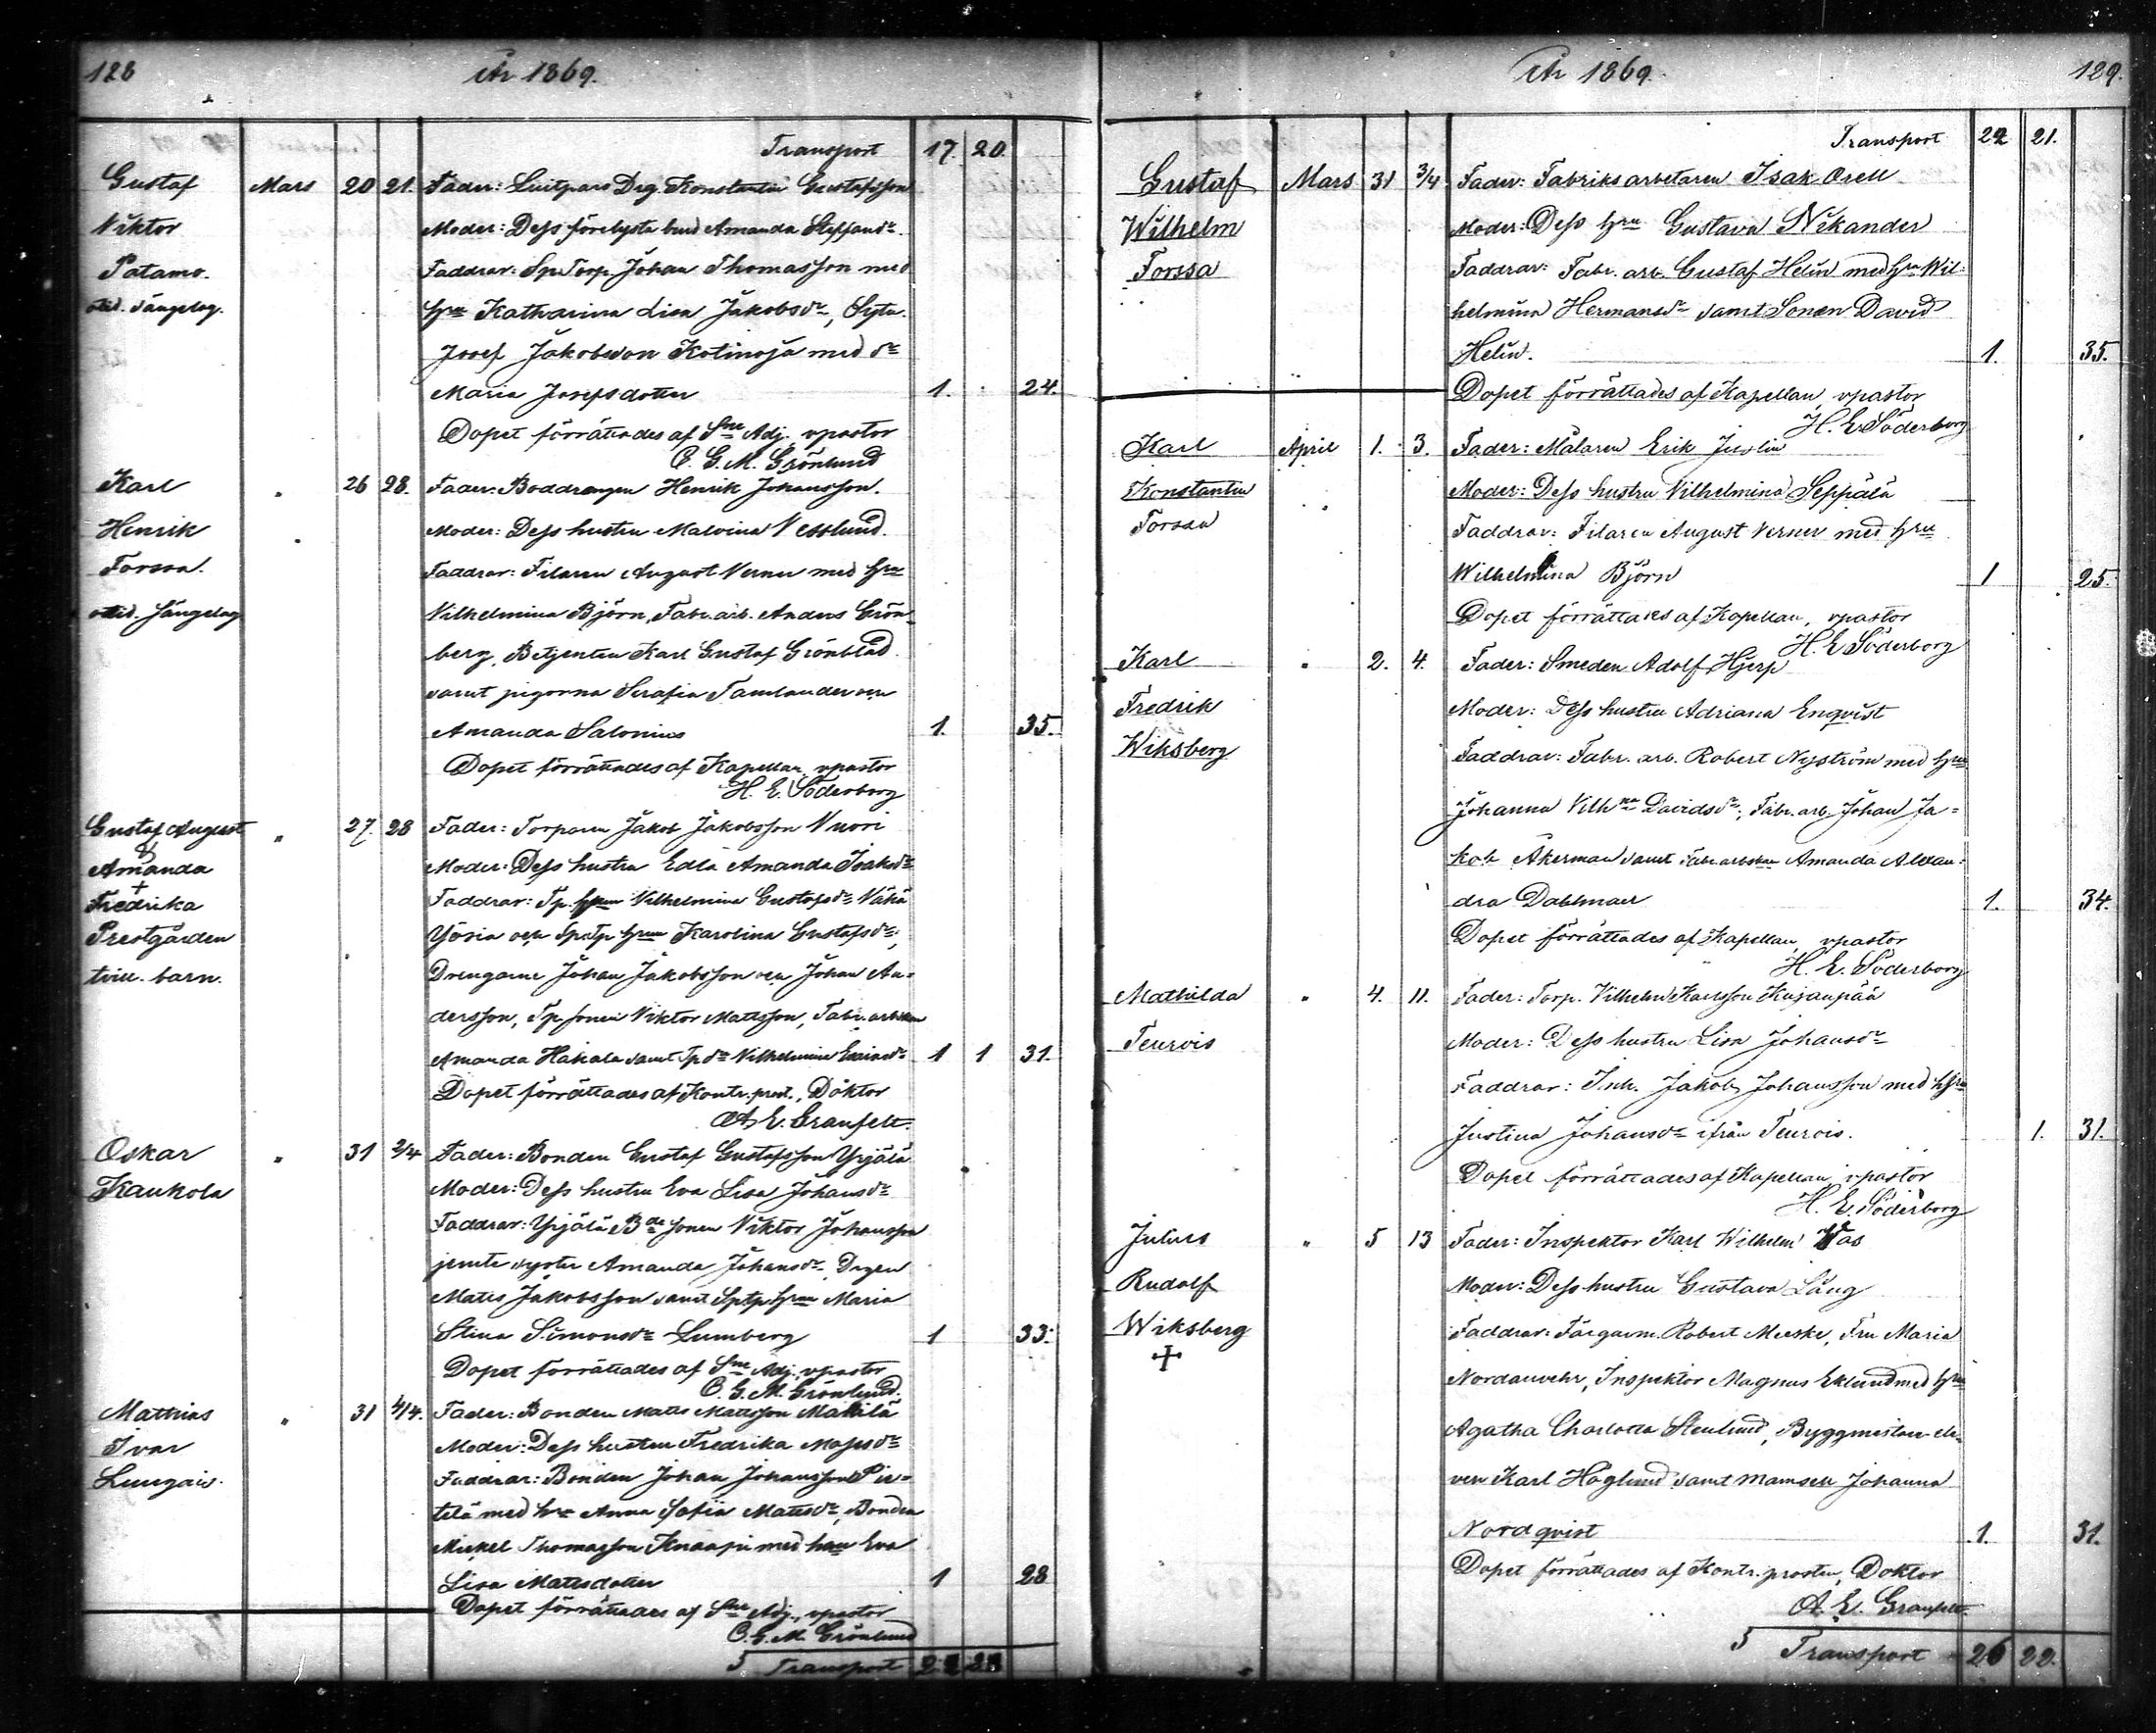 128
År 1869.
Transport 17. 20.
Gustaf Mars 20 21. Fader: Drg. Konstantin Gustafsson
Viktor Moder: Dess förelysta brud Amanda Steffansdr.
Patamo. Faddrar: Sp. Torp. Johan Thomasson med
Hru Katharina Lisa Jakobsdr,
Josef Jakobsson Kotinoja med dr
Maria Josefsdotter 1. 24.
Dopet förrättades af Sne Adj. vpastor
C. G. M. Grönlund
Karl " 26 28. Fader: Boddrengen Henrik Johansson.
Henrik Moder: Dess hustru Malvina Vesslund.
Forssa. Faddrar: Filaren August Verner med Hru
Vilhelmina Björn, Fabr. arb. Anders Grön-
berg, Betjenten Karl Gustaf Grönblad
samt pigorna Serafia Tamlander och
Amanda Salonius 1. 35.
Dopet förrättades af Kapellan, vpastor
H. E. Söderborg
Gustaf August " 27. 28 Fader: Torparen Jakob Jakobsson Vuori
&
Amanda Moder: Dess hustru Edla Amanda Isaksdr
+
Fredrika Faddrar: Tp. Vilhelmina Gustafsdr Vähä
Prestgården Yösia och Sp.tp. Hrun Karolina Gustafsdr,
tvill. barn. Drengarne Johan Jakobsson och Johan An-
dersson, Tp. sonen Viktor Mattsson, Fabr. arbskan
Amanda Hakala samt Tp. dr Vilhelmina 1 1 31.
Dopet förrättades af Kontr. prost., Doktor
A. E. Granfelt.
Oskar " 31 2/4 Fader: Bonden Gustaf Gustafsson Yrjälä
Kaukola Moder: Dess hustru Eva Lisa Johansdr
Faddrar: Yrjälä Bde sonen Viktor Johansson
jemte syster Amanda Johansdr, Drgen
Matts Jakobsson samt Sptp Hrun Maria
Stina Simonsdr Lumberg 1 33.
Dopet förrättades af Sne Adj. vpastor
C. G. M. Grönlund.
Mathias " 31 4/4. Fader: Bonden Matts Mattsson Mattilä
Ivar Moder: Dess hustru Fredrika Mosesdr
Lungais. Faddrar: Bonden Johan Johansson Pie-
tilä med hru Anna Sofia Mattsdr, Bonden
Mickel Thomasson Knaapi med hru Eva
Lisa Mattsdotter 1 28
Dopet förrättades af Sne Adj., vpastor
C. G. M. Grönlund
5 Transport 22 21
År 1869.
129.
Transport 22 21.
Gustaf Mars 31 3/4 Fader: Fabriksarbetaren Isak Orell
Wilhelm Moder: Dess hru Gustava Nikander
Forssa Faddrar: Fabr. arb. Gustaf Helin med hru Wil-
helmina Hermansdr samt Sonen David
Helin. 1. 35.
Dopet förrättades af Kapellan, vpastor
H. E. Söderborg
Karl April 1. 3. Fader: Målaren Erik Juslin
Konstantin Moder: Dess hustru Vilhelmina Seppälä
Forssa Faddrar: Filaren August Verner med hru
Wilhelmina Björn 1 25.
Dopet förrättades af Kapellan, vpastor
H. E. Söderborg
Karl " 2. 4. Fader: Smeden Adolf Hjerp
Fredrik Moder: Dess hustru Adriana Enqvist
Wiksberg Faddrar: Fabr. arb. Robert Nyström med hru
Johanna Vilhna Davidsdr, Fabr. arb. Johan Ja-
kob Åkerman samt Fabr. arbskan Amanda Alexan-
dra Dahlman 1. 34.
Dopet förrättades af Kapellan, vpastor
H. E. Söderborg
Mathilda " 4. 11. Fader: Torp. Vilhelm Karlsson Kujanpää
Teurois Moder: Dess hustru Lisa Johansdr
Faddrar: Inh. Jakob Johansson med hru
Justina Johansdr ifrån Teurois. 1. 31.
Dopet förrättades af Kapellan, vpastor
H. E. Söderborg
Julius " 5 13 Fader: Inspektor Karl Wilhelm Vas
Rudolf Moder: Dess hustru Gustava Lång
Wiksberg Faddrar: Färgarm. Robert Meeske, Fru Maria
+
Nordanvehr, Inspektor Magnus Eklund med hru
Agatha Charlotta Stenlund, Byggmästare ele-
ven Karl Höglund samt mamsell Johanna
Nordqvist 1. 31.
Dopet förrättades af Kontr. prosten, Doktor
A. E. Granfelt.
5 Transport 26 22.